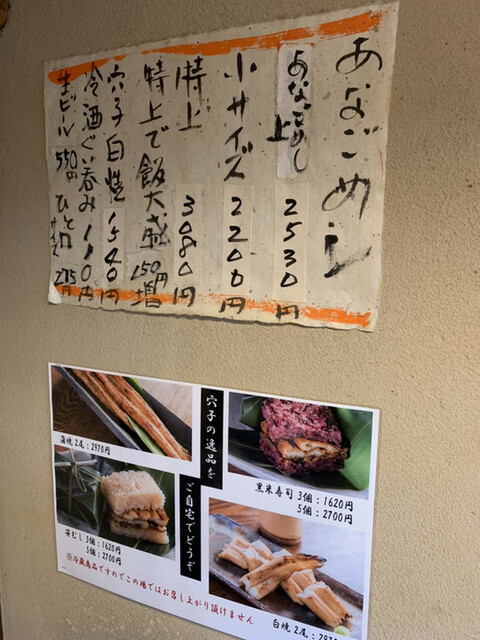 あなごめし
あなごめし 上 2530円
小サイズ 2200円
特上 3080円
特上で飯大盛 150円増
穴子白焼 1540円
冷酒ぐい呑み 110円
生ビール 550円 ひと口サイズ 275円
穴子の逸品を
ご自宅でどうぞ
蒲焼 2尾：2970円
黒米寿司 3個：1620円
5個：2700円
笹むし 3個：1620円
5個：2700円
白焼 2尾：297
※冷蔵商品ですのでこの場ではお召し上がり頂けません